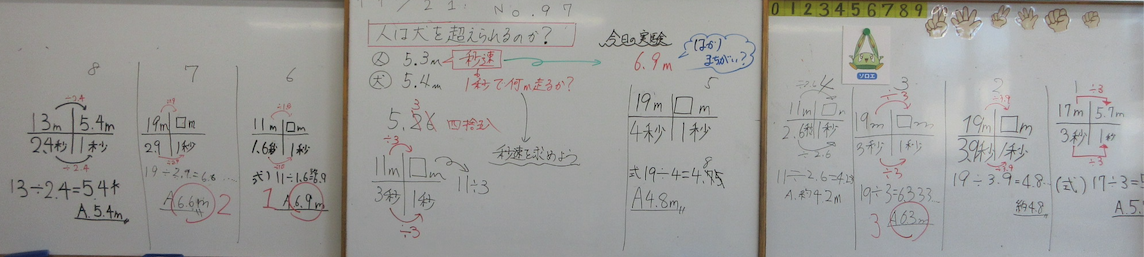 8
÷2.4
13m 5.4m
2.4秒 1秒
÷2.4
13÷2.4=5.4
A.5.4m
7
19m □m
2.9 1秒
19÷2.9=6.6...
A6.6m 2
6
11m □m
1.6秒 1秒
式)11÷1.6=6.9
1 A6.9m
No.97
人は犬を超えられるのか?
人 5.3m 秒速
犬 5.4m 1秒で何m走るか?
3
5.26 四捨五入
÷3
11m □m
3秒 1秒
11÷3
÷3
秒速を求めよう
今日の実験
6.9m
はかり
まちがい?
5
19m □m
4秒 1秒
8
式19÷4=4.75
A4.8m
0 1 2 3 4 5 6 7 8 9
ソロエ
4
11m □m
2.6秒 1秒
÷2.6
11÷2.6=4.2
A.約4.2m
3
÷3
19m □m
3秒 1秒
÷3
19÷3=6.333...
3 A6.3m
2
÷3.9
19m □m
3.9秒 1秒
÷3.9
19÷3.9=4.8...
約4.8
1
÷3
17m 5.7m
3秒 1秒
÷3
(式)17÷3=5
A.5.